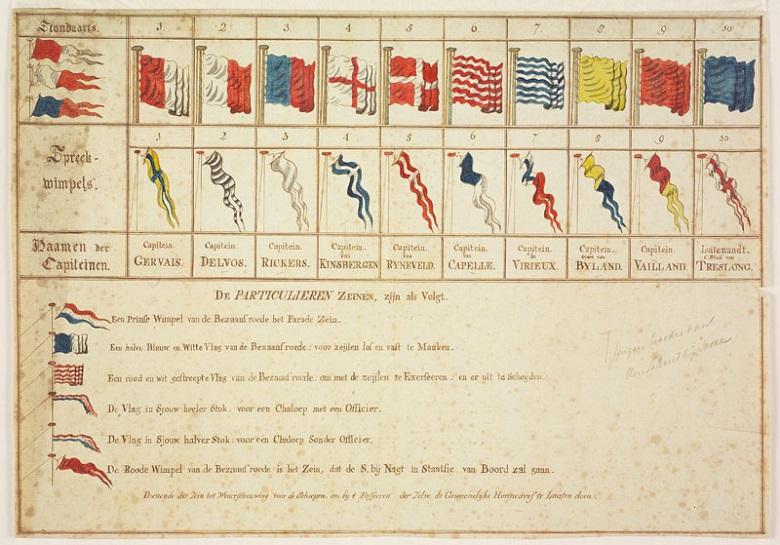 Standaarts.
1. 2. 3. 4 5. 6. 7. 8 9. 10
1 2 3. 4 5. 6 7 8 9 10
Spreek-
wimpels.
Naamen der
Capiteinen.
Capitein.
GERVAIS.
Capitein.
DELVOS.
Capitein.
RICKERS.
Capitein.
van
KINSBERGEN
Capitein.
van
RYNEVELD.
Capitein.
van
CAPELLE.
Capitein.
de
VIRIEUX.
Capitein.
Graave van
BYLAND.
Capitein.
VAILLAND.
Luitenandt.
van
TRESLONG.
DE PARTICULIEREN ZEINEN, zijn als Volgt.
Een Prinse Wimpel van de Bezaansroede het Parade Zein.
Een halve Blouw en Witte Vlag van de Bezaansroede voor zeijlen los en vast te Maaken.
Een rood en wit gestreepte Vlag van de Bezaansroede om met de zeijlen te Exerseeren en er uit te Scheyden.
De Vlag in Sjouw heeler Stok voor een Chaloep met een Officier.
De Vlag in Sjouw halver Stok voor een Chaloep Sonder Officier.
De Roode Wimpel van de Bezaansroede is het Zein, dat de S. bij Nagt in Staatsie van Boord zal gaan.
Dienende dit Zein tot Waarschouwing voor de Scheepen om by t Passeeren der Zelve de Gewoonelijke te Laaten doen.